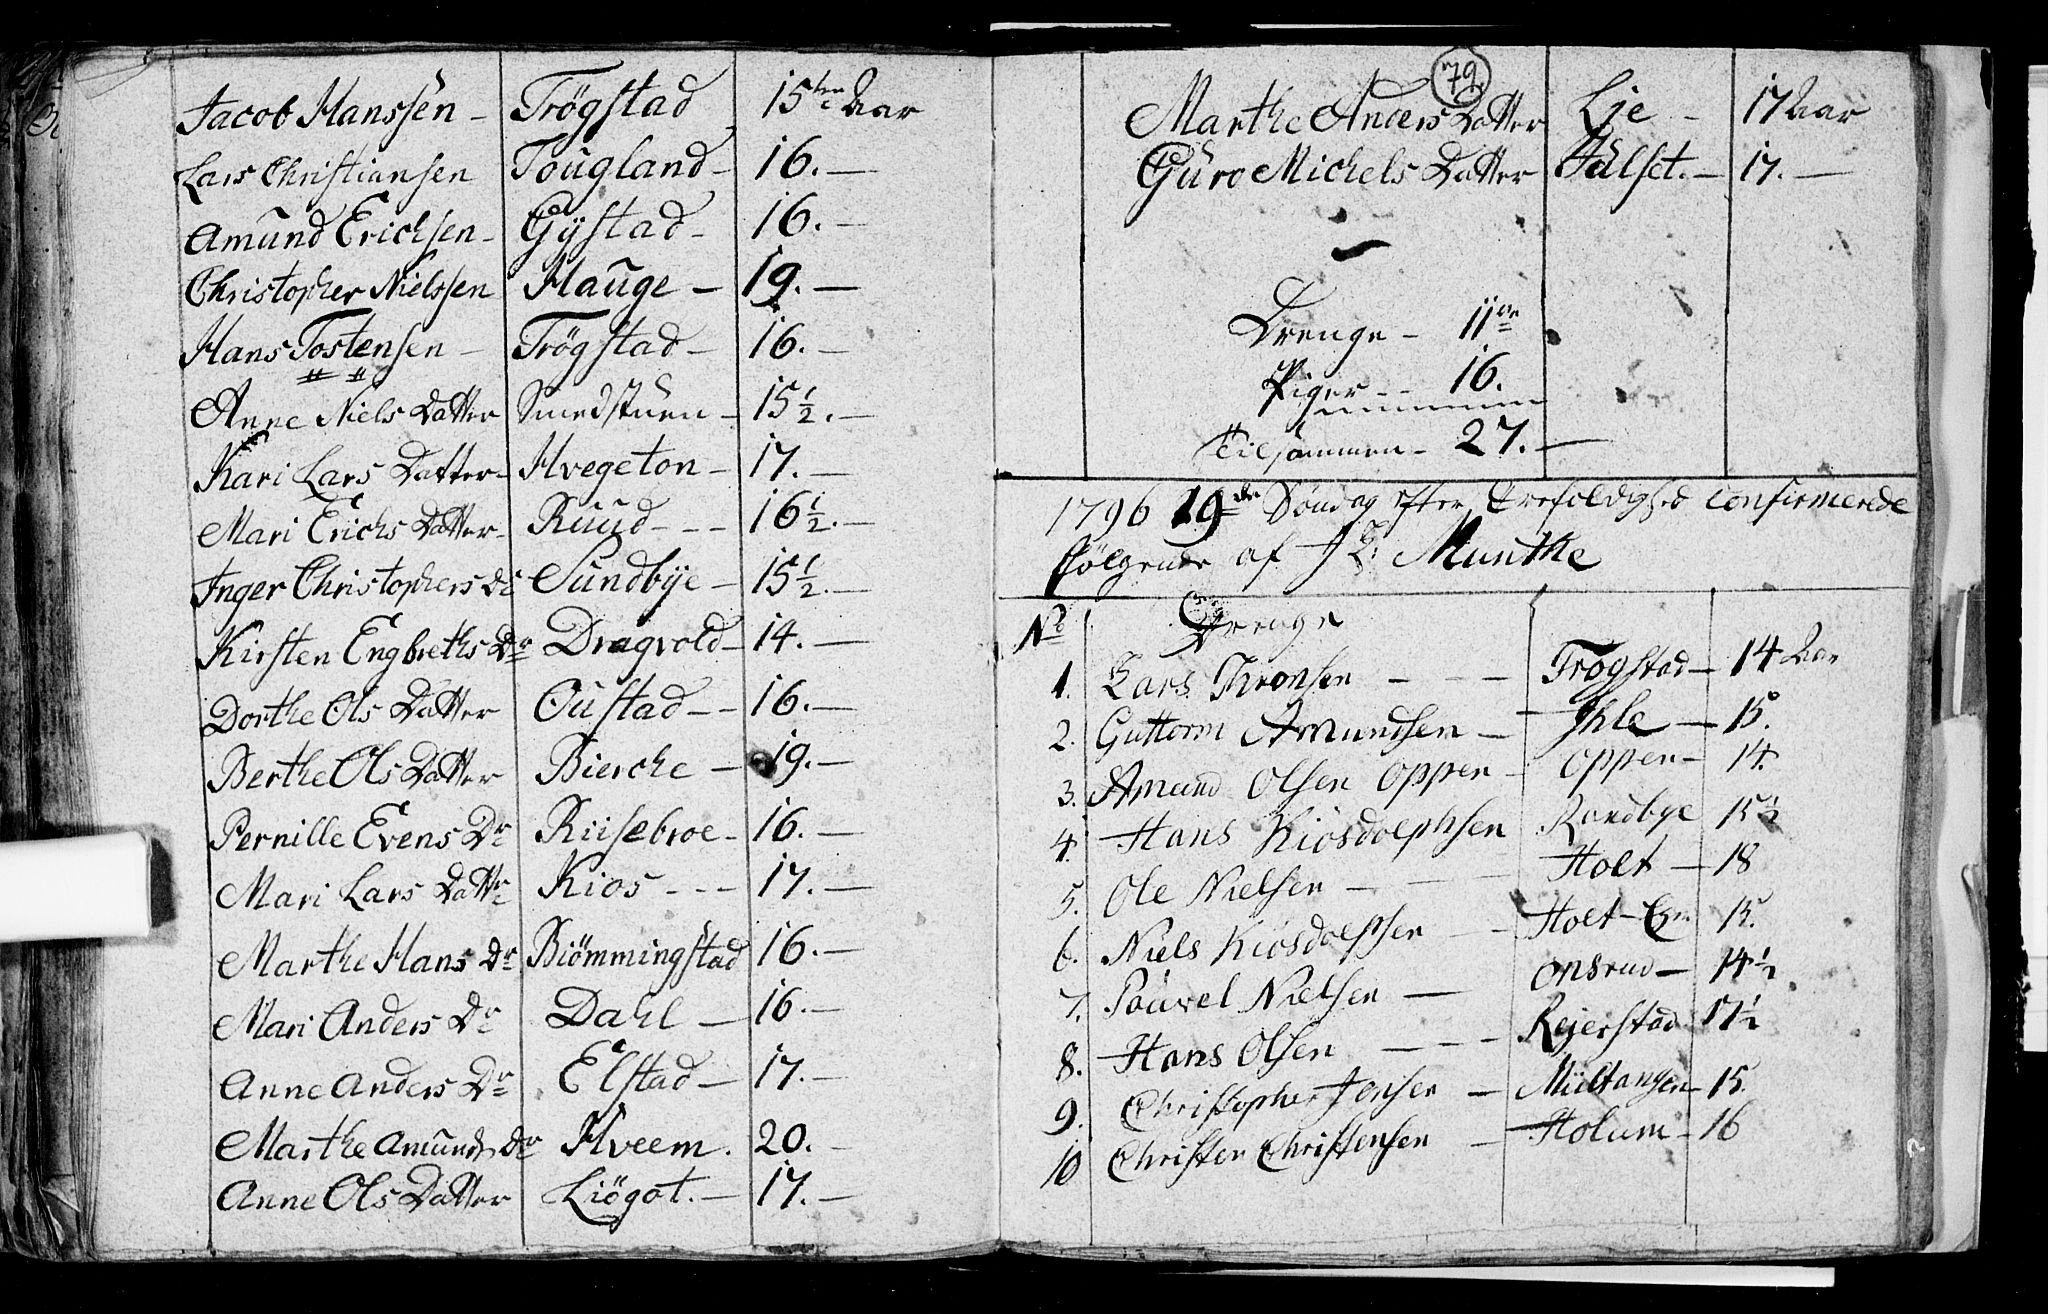 Jacob Hanssen - Trögstad 15ten Aar
Lars Christiansen Tougland - 16. -
Amund Erichsen - Gÿstad - 16. -
Christopher Nielssen Hauge - 19. -
Hans Tostensen - Trögstad - 16. -
Anne Niels Datter Smedstuen - 15 1/2. -
Kari Lars Datter - Hvegeton - 17. -
Mari Erichs Datter - Ruud - - - 16 1/2. -
Inger Christophers Dr Sundbÿe - 15 1/2. -
Kirsten Engbreths Dr Dragvold - 14. -
Dorthe Ols Datter Oustad - - 16. -
Berthe Ols Datter Bierche - 19. -
Pernille Evens Dr Riisebroe - 16. -
Mari Lars Dattr Kios - - - 17. -
Marthe Hans Dr Biömmingstad 16. -
Mari Anders Dr Dahl - 16. -
Anne Anders Dr Elstad - 17. -
Marthe Amunds Dr Hveem. 20. -
Anne Ols Datter Liögot. - 17. -
79
Marthe Anders Datter Lie - 17 Aar
Guro Michels Datter Julset. - 17. -
Drenge - 11ve
Piger - - 16.
Tilsammen - 27. -
1796 19de Söndag efter Trefoldighed confirmerede
følgende af Munthe
No Drenge
1. Lars Thronsen - - - Trogstad - 14 Aar
2. Guttorm Amundsen - Ihle - 15.
3. Amund Olsen Oppen - Oppen - 14.
4. Hans Kiosdolphsen Randbye 15 1/2
5. Ole Nielsen - - - Holt - 18
6. Niels Kiosdolphsen - Holt - 15.
7. Pouvel Nielsen - Onsrud - 14 1/2
8. Hans Olsen - - - Rejerstad 17 1/2
9. Christopher Jensen - Miiltangen - 15.
10 Christen Christensen - Holum - 16